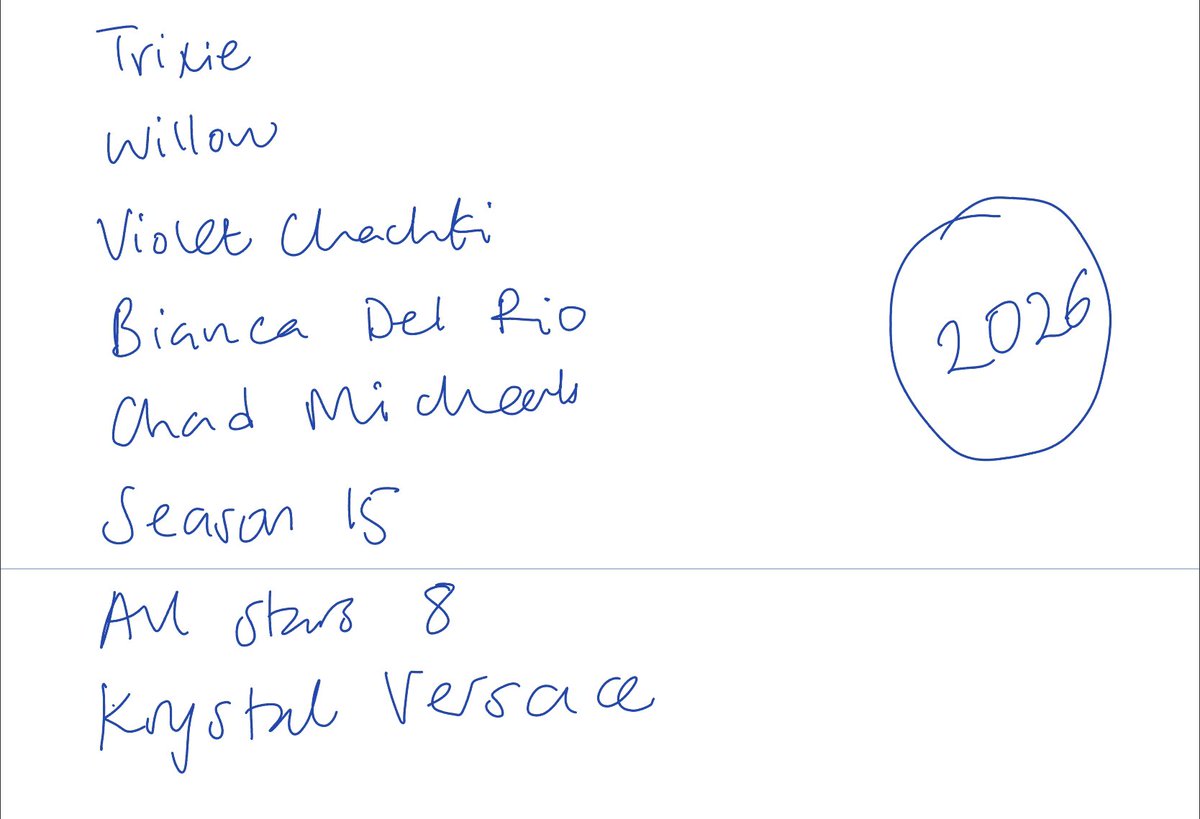 Trixie
Willow
Violet Chachki
Bianca Del Rio
Chad Michaels
Season 15
All stars 8
Krystal Versace
2026